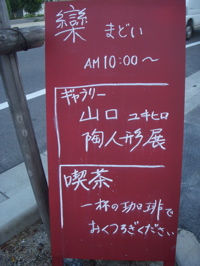 欒 まどい
AM10:00〜
ギャラリー
山口 ユキヒロ
陶人形展
喫茶
一杯の珈琲で
おくつろぎください